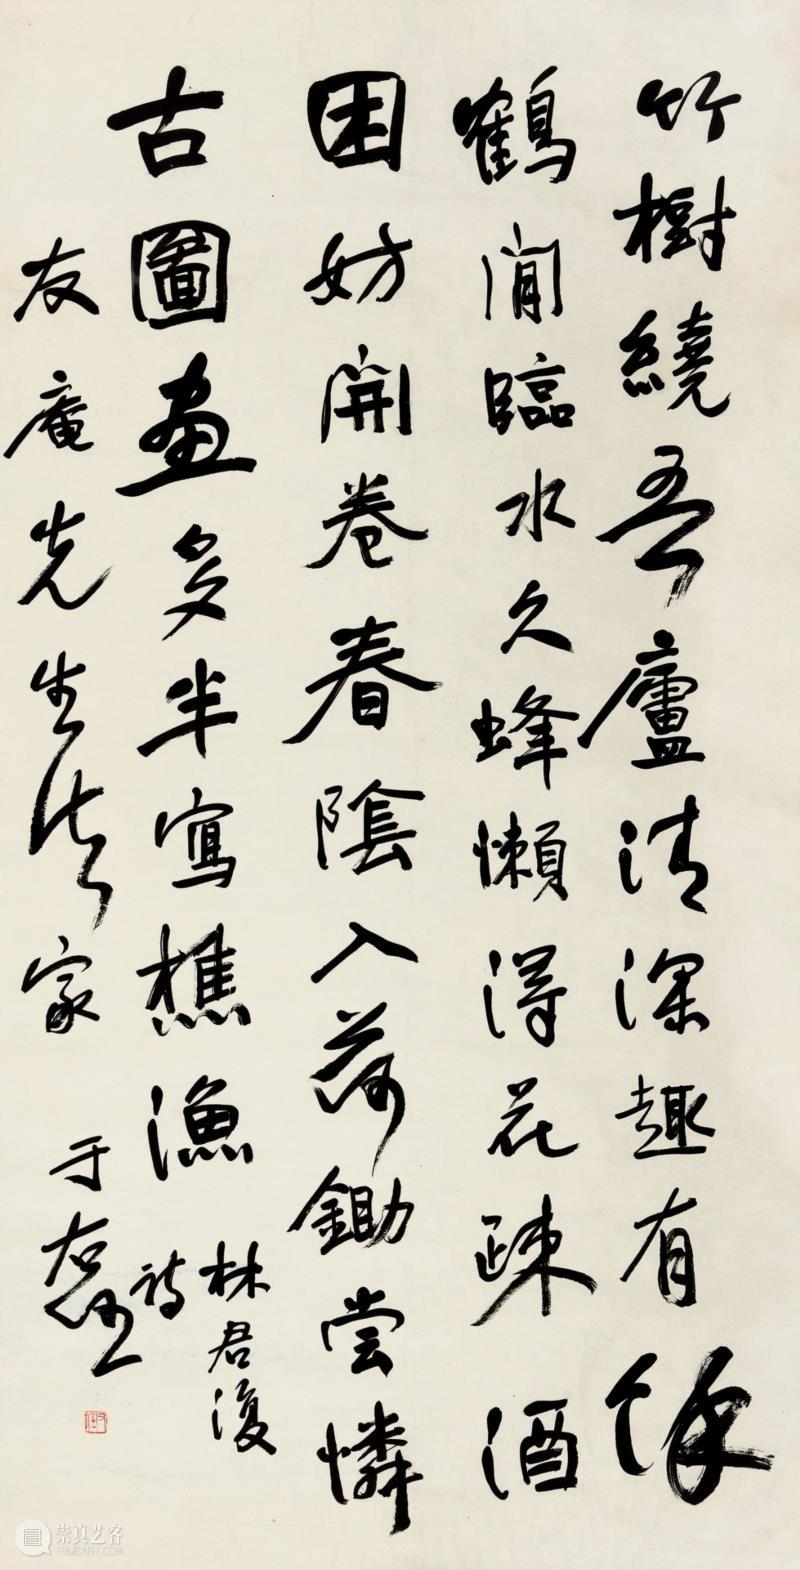 竹樹繞吾廬清深趣有餘
鶴閒臨水久蜂懶得花疎酒
困妨開卷春陰入荷鋤尝憐
古圖畫多半寫樵漁
林君復
詩
友庵先生法家 于右任
右任
崇真艺客
TRUEART.COM